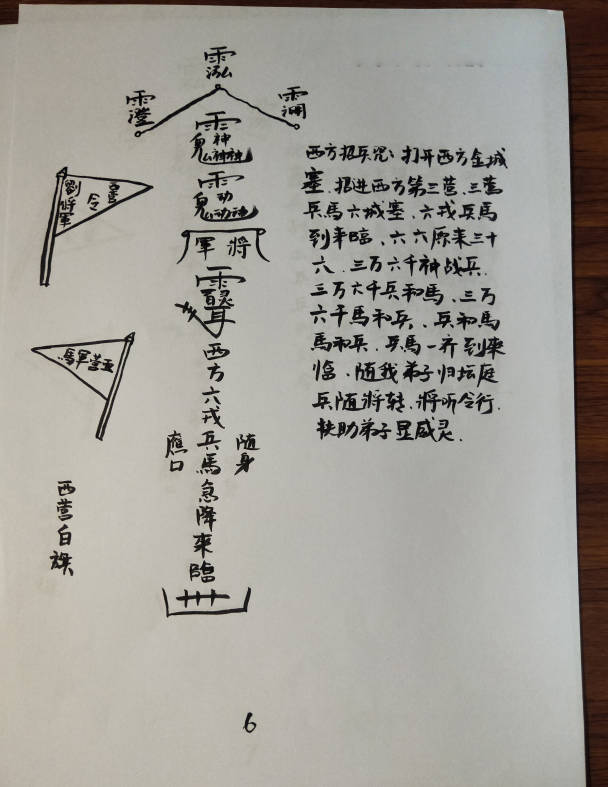 西方招兵咒: 打开西方金城
塞、招进西方第三营、三营
兵馬六城塞、六戎兵馬
到来臨、六六原来三十
六、三万六千神战兵.
三万六千兵和馬、三万
六千馬和兵、兵和馬
馬和兵、兵馬一齐到来
临、随我弟子归坛庭
兵随将转、将听令行.
扶助弟子显威灵.
劉將軍
西营
令
西营軍馬
西营白旗
將軍
西方六戎兵馬急降來臨
随身
應口
6